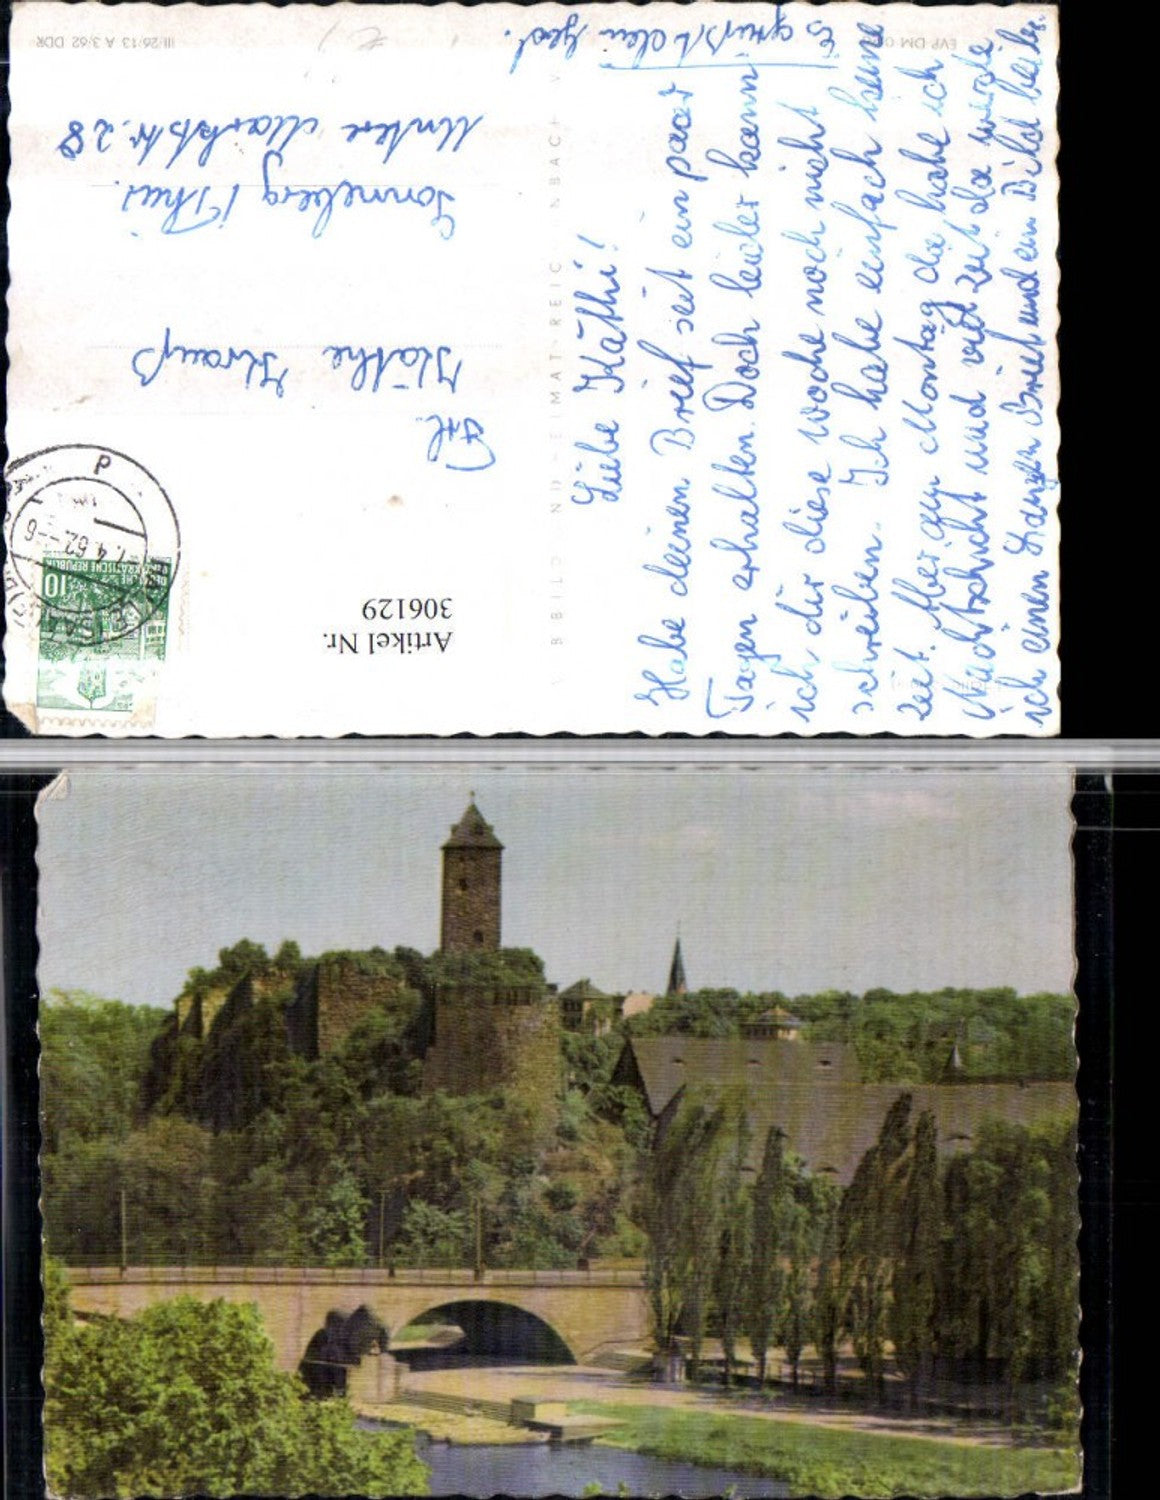 Liebe Käthi!
Habe deinen Brief seit ein paar
Tagen erhalten. Doch leider kann
ich dir diese Woche noch nicht
schreiben. Ich habe einfach keine
Zeit. Aber am Montag da habe ich
Nachtschicht und viel Zeit da werde
ich einen Langen Brief und ein Bild beile.
Es grüßt dein
Frl.
Käthe Krauß
Sonneberg /Thür.
Untere Marktstr. 28
Artikel Nr.
306129
III/26/13 A 3/62 DDR
EVP DM
BILD UND HEIMAT REICHENBACH
10
DEUTSCHE
DEMOKRATISCHE REPUBLIK
(SAALE)
4.62.-6